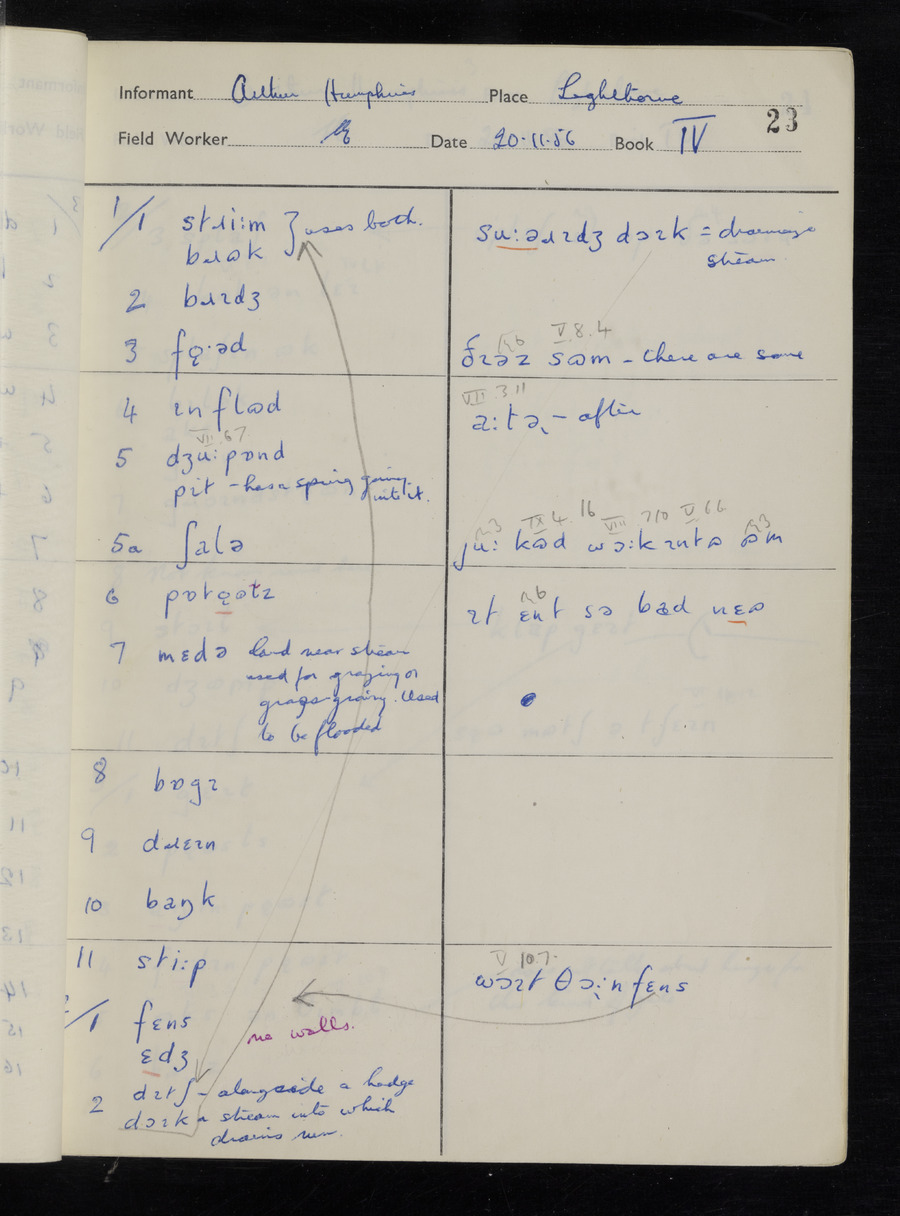 Informant Arthur Humphries Place Lighthorne
23
Field Worker Date 20.11.56 Book IV
1/1 stɹiːm } uses both.
bɹʊk
suːəɹɪdʒ dɔɪk = drainage
stream
2 bɹɪdʒ
V.8.4
3 fɔ̜·əd
ðɪəz sʊm – there are some
VII.3.11
4 ɪn flʊd
aːtə – after
VII.67
5 dʒuːpɒnd
pɪt – has a spring going
into it.
IX.4.16 VIII 7/10 V.6.6
5a ʃalə
juː kʊd wɔːk ɪntʊ əm
6 pɒtɛ̜ʊtɪ
ɪt ɛnt sə bad nɛʊ
7 mɛdə land near stream
used for grazing or
grass-growing. Used
to be flooded
8 bɒgɪ
9 dɹɛɪn
10 baŋk
11 stiːp
V 10.7.
wɔɪt θɔːn fɛns
/1 fɛns
no walls.
ɛdʒ
2 dɪtʃ – alongside a hedge
dɔɪk a stream into which
drains run.